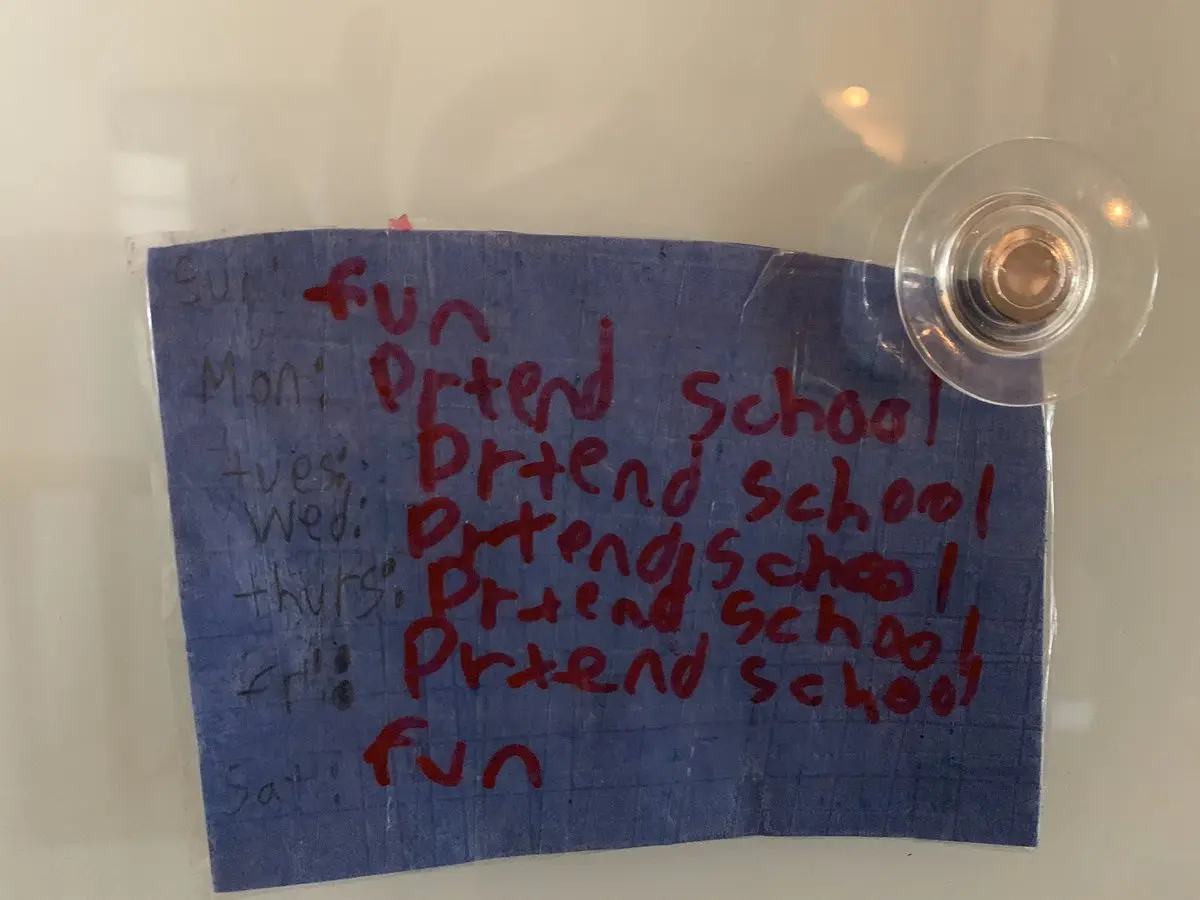 Sun: fun
Mon: Prtend school
tues: Prtend school
Wed: Prtend school
thurs: Prtend school
fri: Prtend school
Sat: fun